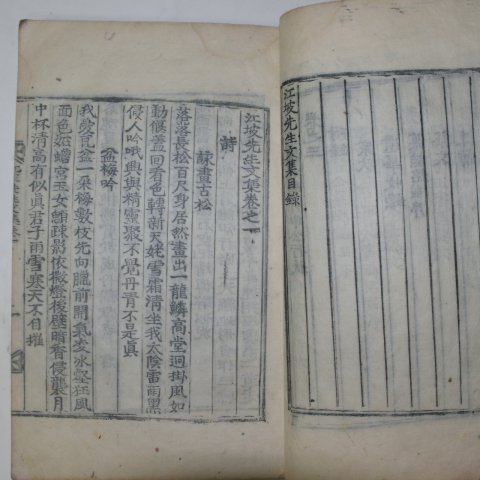 江坡先生文集目錄
江坡先生文集卷之一
詩
詠畫古松
落落長松百尺身居然畫出一龍鱗高堂迥掛風如
動偃蓋回看色轉新天姥雪霜清坐我太陰雷雨黑
侵人吟哦興與精靈聚不覺丹靑不是眞
盆梅吟
我愛瓦盆一朶梅數枝先向臘前開氣凌冰壑狂風
面色妬蟾宮玉女顋疎影依微燈後壁暗香侵襲月
中杯淸高有似眞君子雨雪寒天不自摧